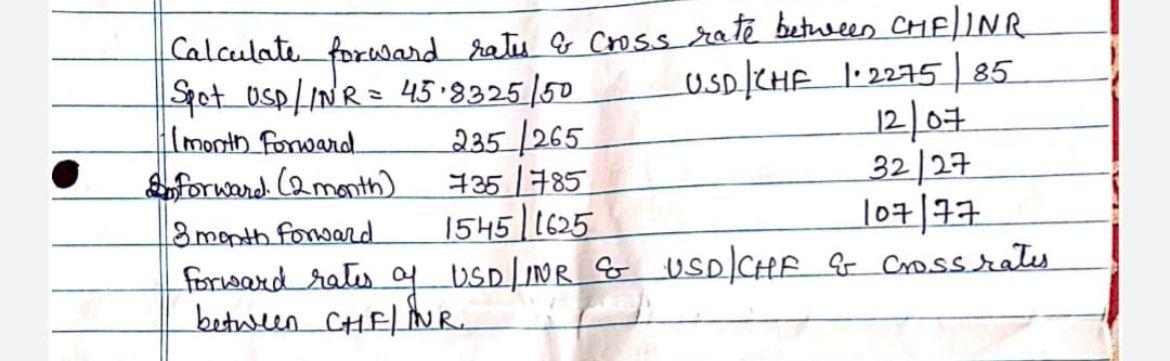 Calculate forward rates & Cross rate between CHF/INR
Spot USD/INR = 45.8325/50 USD/CHF 1.2275/85
1 month forward 235/265 12/07
forward (2 month) 735/785 32/27
3 month forward 1545/1625 107/77
forward rates of USD/INR & USD/CHF & Cross rates
between CHF/INR.